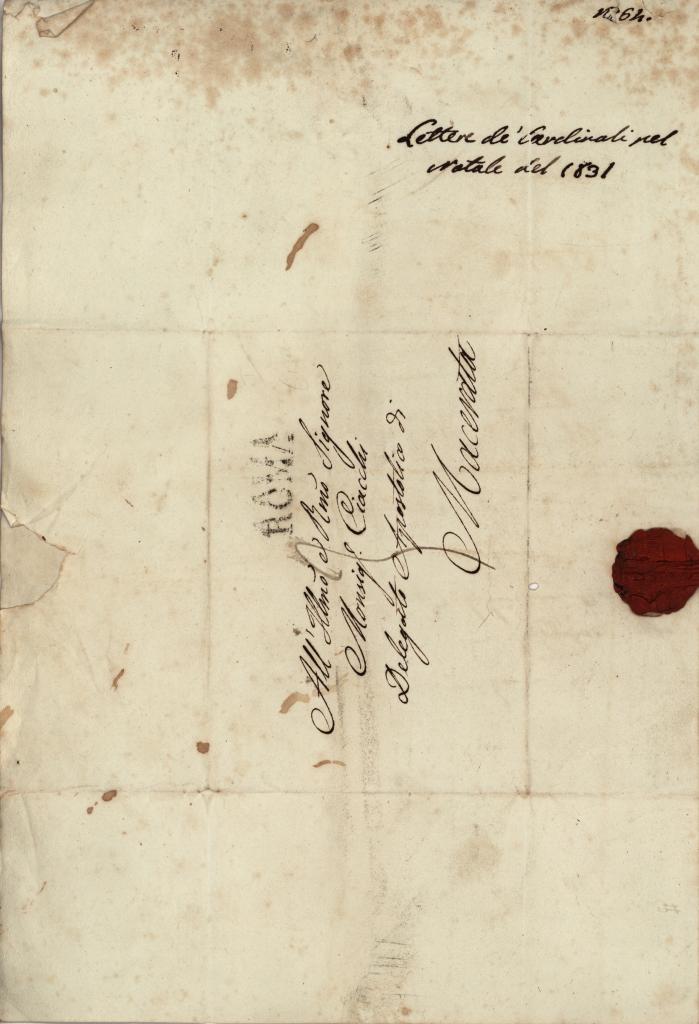 N. 64.
Lettere de' Cardinali pel
Natale del 1831
ROMA
All' Illmo e Rmo Signore
Monsigr. Ciacchi
Delegato Apostolico di
Macerata